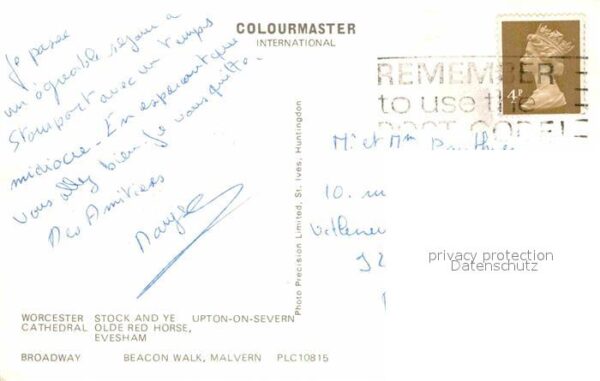 COLOURMASTER
INTERNATIONAL
Je passe
un agréable séjour à
Stomport avec un temps
midiocre - En esperant que
vous allez bien je vous quitte.
Mes Amitiers
REMEMBER
to use the
POST CODE!
4P
Mr et Mm
10.
privacy protection
Datenschutz
Photo Precision Limited, St. Ives, Huntingdon
WORCESTER STOCK AND YE UPTON-ON-SEVERN
CATHEDRAL OLDE RED HORSE,
EVESHAM
BROADWAY BEACON WALK, MALVERN PLC10815